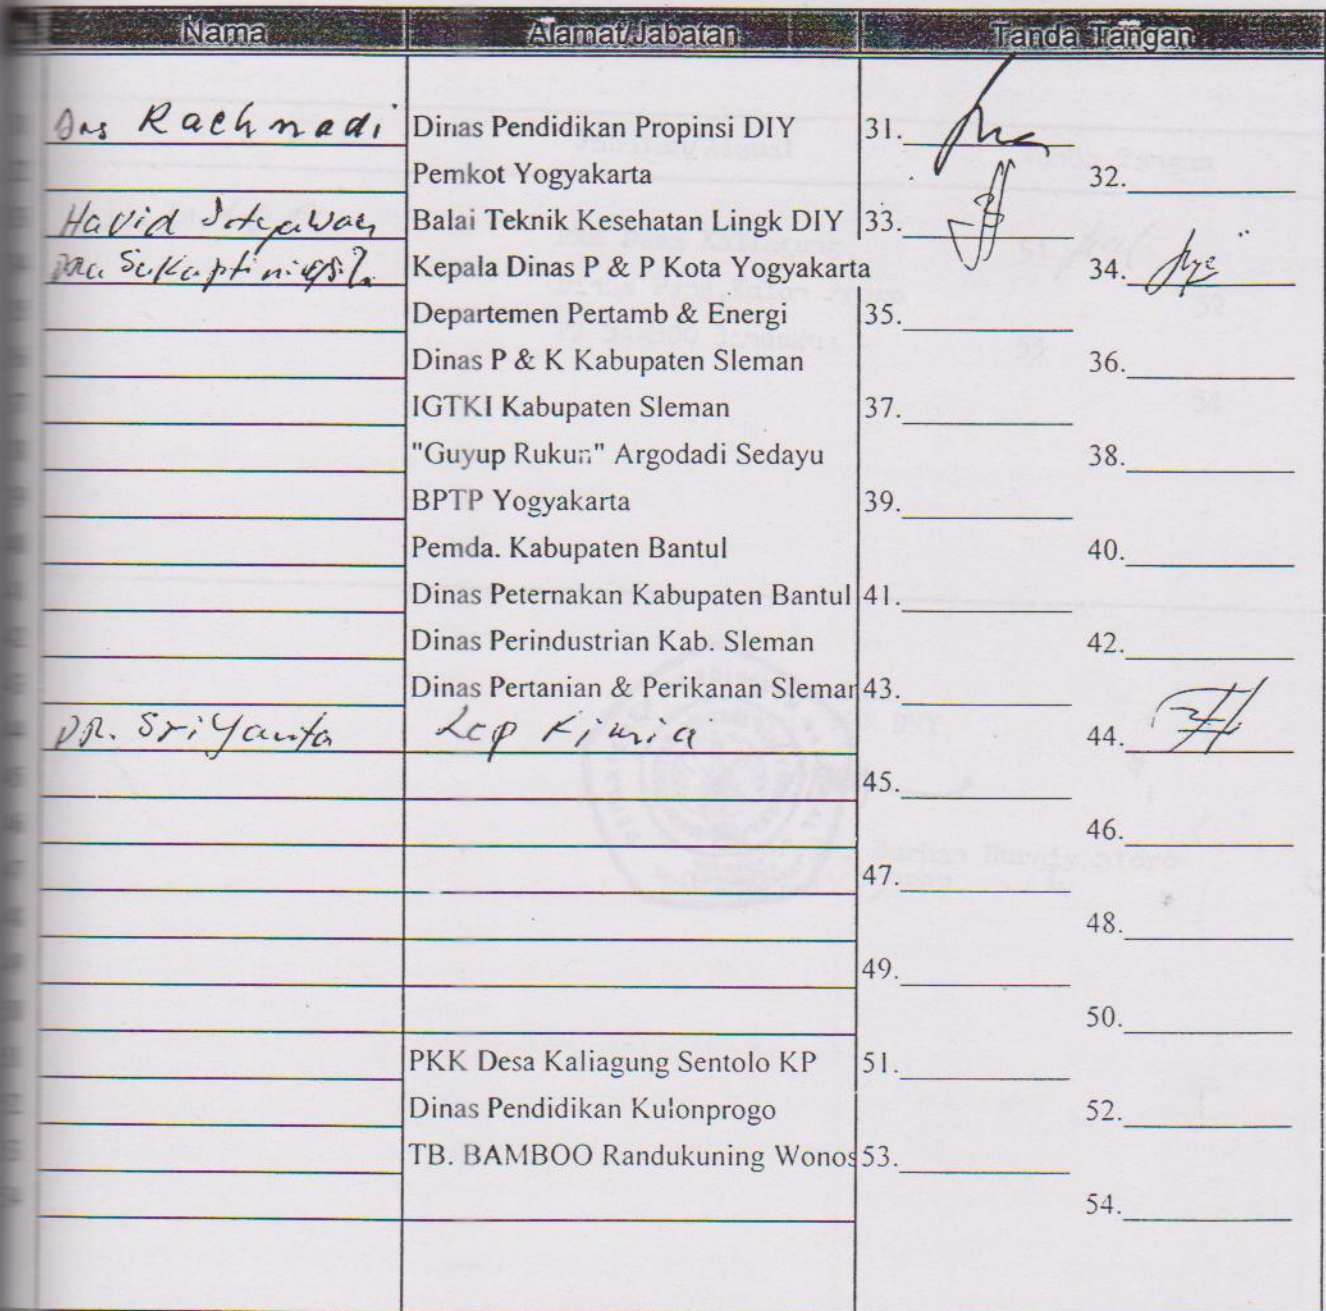 Nama Alamat/Jabatan Tanda Tangan
Drs Rachmadi Dinas Pendidikan Propinsi DIY 31.
Pemkot Yogyakarta 32.
Havid Balai Teknik Kesehatan Lingk DIY 33.
Kepala Dinas P & P Kota Yogyakarta 34.
Departemen Pertamb & Energi 35.
Dinas P & K Kabupaten Sleman 36.
IGTKI Kabupaten Sleman 37.
"Guyup Rukun" Argodadi Sedayu 38.
BPTP Yogyakarta 39.
Pemda. Kabupaten Bantul 40.
Dinas Peternakan Kabupaten Bantul 41.
Dinas Perindustrian Kab. Sleman 42.
Dinas Pertanian & Perikanan Sleman 43.
DR. Sriyanta Kimia 44.
45.
46.
47.
48.
49.
50.
PKK Desa Kaliagung Sentolo KP 51.
Dinas Pendidikan Kulonprogo 52.
TB. BAMBOO Randukuning Wonos 53.
54.